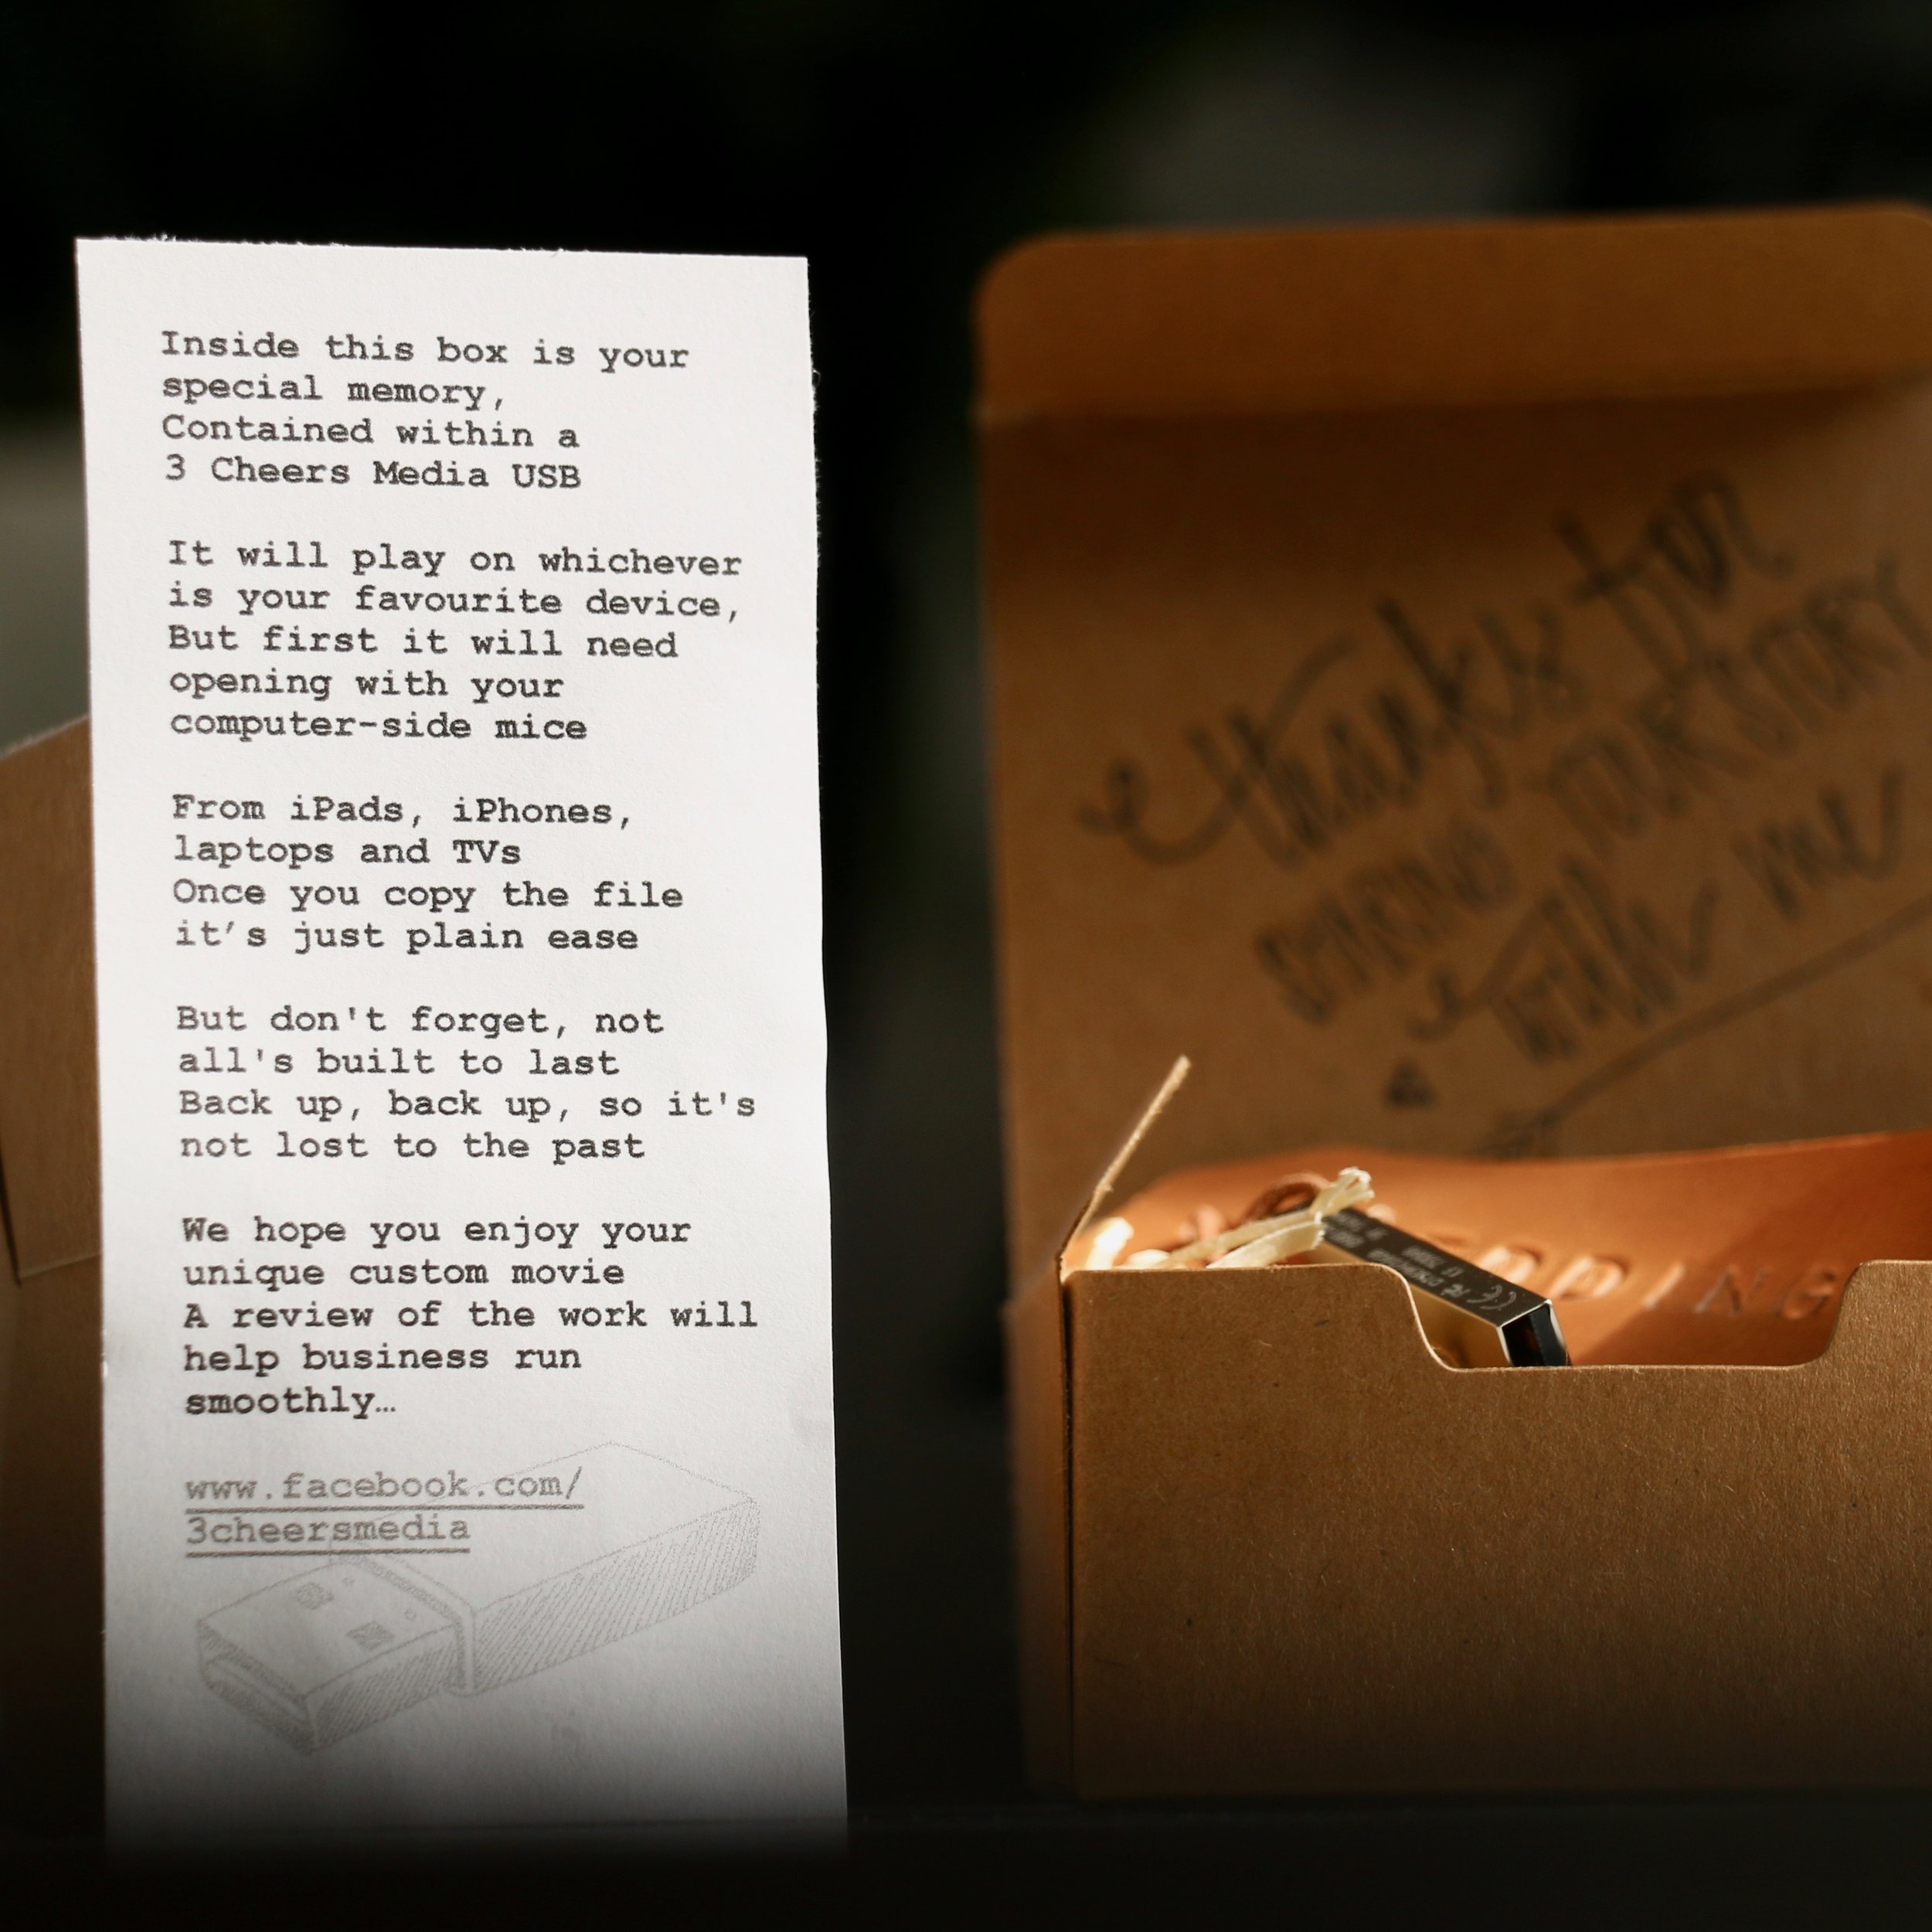 Inside this box is your
special memory,
Contained within a
3 Cheers Media USB
It will play on whichever
is your favourite device,
But first it will need
opening with your
computer-side mice
From iPads, iPhones,
laptops and TVs
Once you copy the file
it’s just plain ease
But don't forget, not
all's built to last
Back up, back up, so it's
not lost to the past
We hope you enjoy your
unique custom movie
A review of the work will
help business run
smoothly…
www.facebook.com/
3cheersmedia
thanks for
SHARING YOUR STORY
with me
DDING
CE